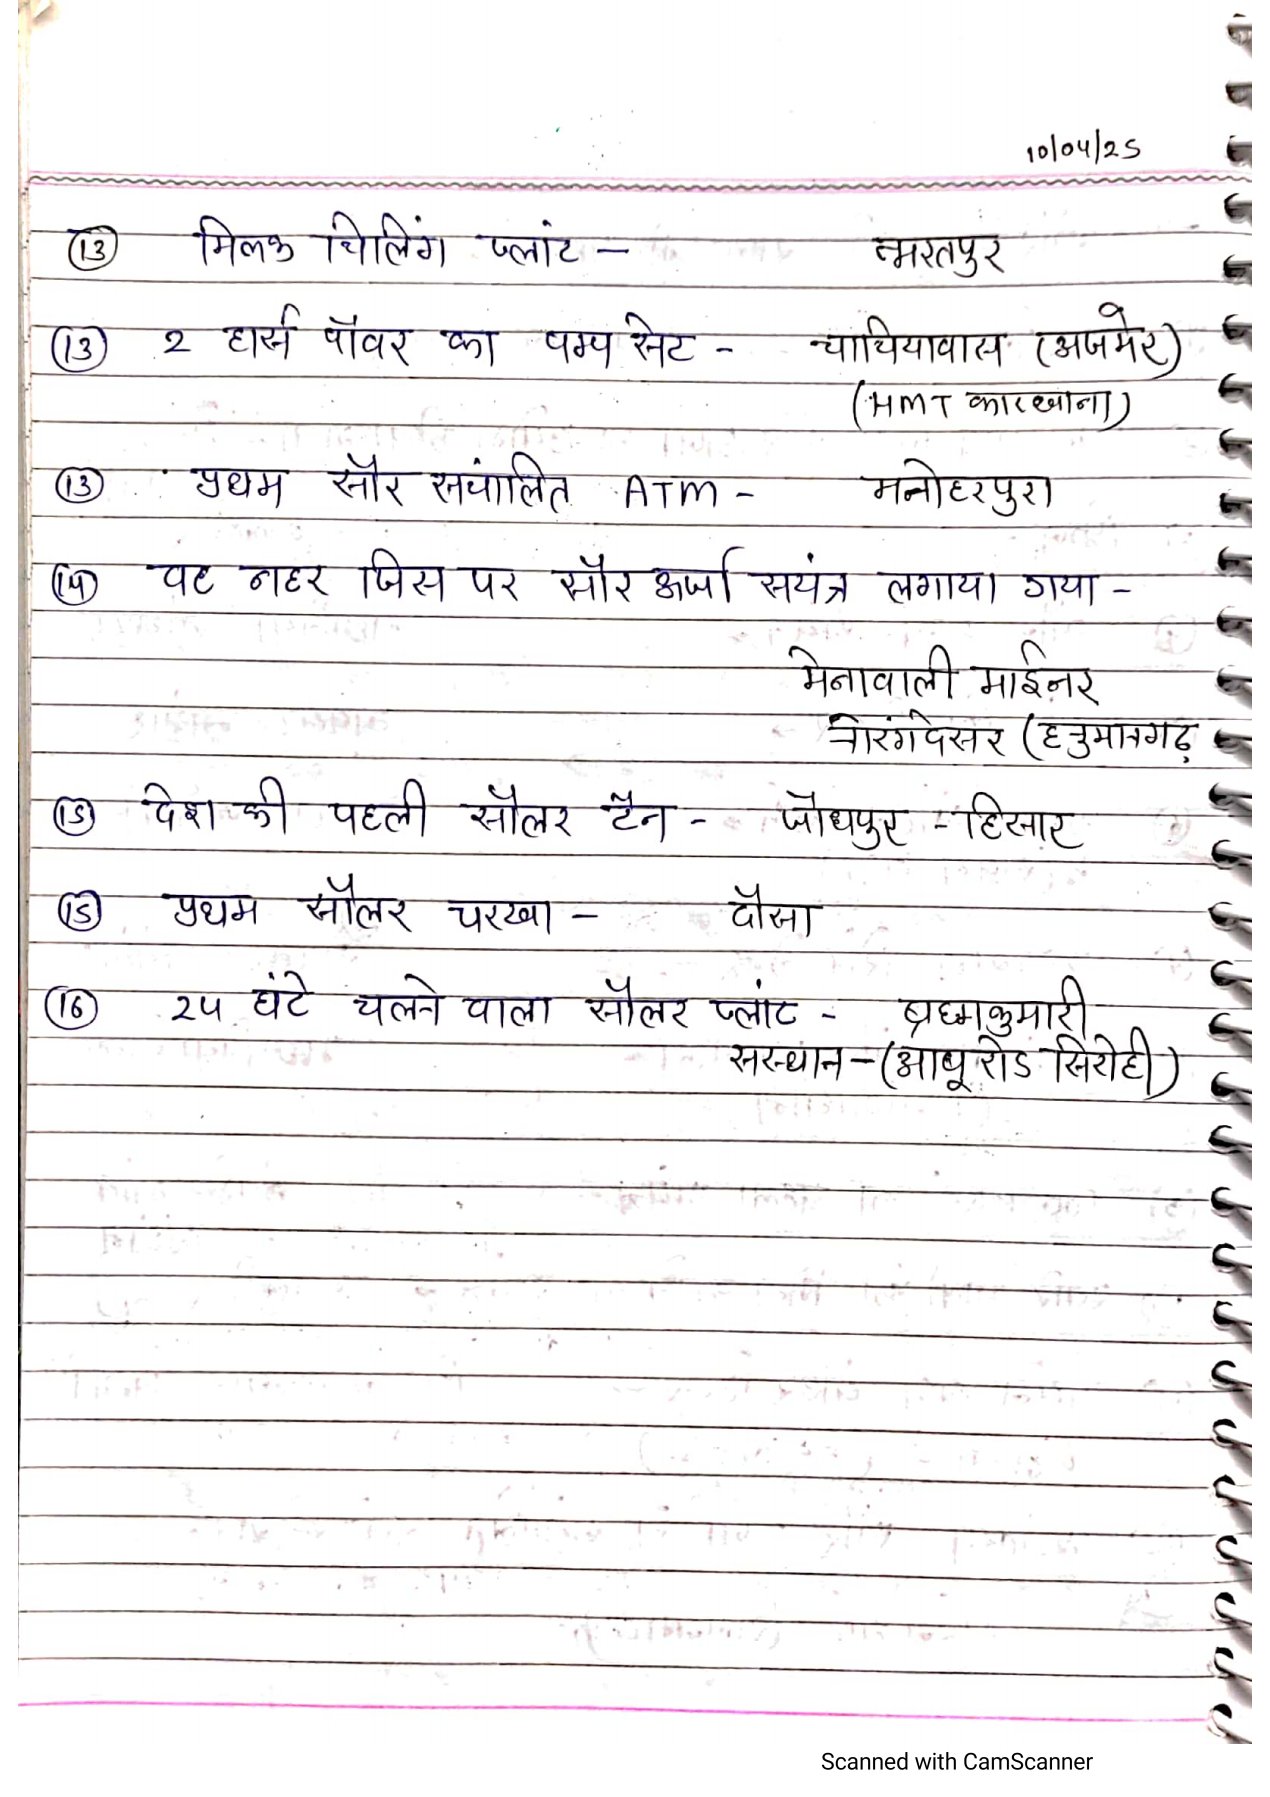 10/04/25
(13) मिलक चिलिंग प्लांट – भरतपुर
(13) 2 हार्स पॉवर का पम्प सेट - चाचियावास (अजमेर)
(HMT कारखाना)
(13) प्रथम सौर सचांलित ATM - मनोहरपुरा
(14) वह नहर जिस पर सौर ऊर्जा सयंत्र लगाया गया -
मेनावाली माईनर
नोरंगदेसर (हनुमानगढ़
(15) देश की पहली सौलर टैन - जौधपुर - हिसार
(15) प्रथम सौलर चरखा – दौसा
(16) 24 घंटे चलने वाला सौलर प्लांट - ब्रह्मकुमारी
सस्थान – (आबू रोड सिरोही)
Scanned with CamScanner